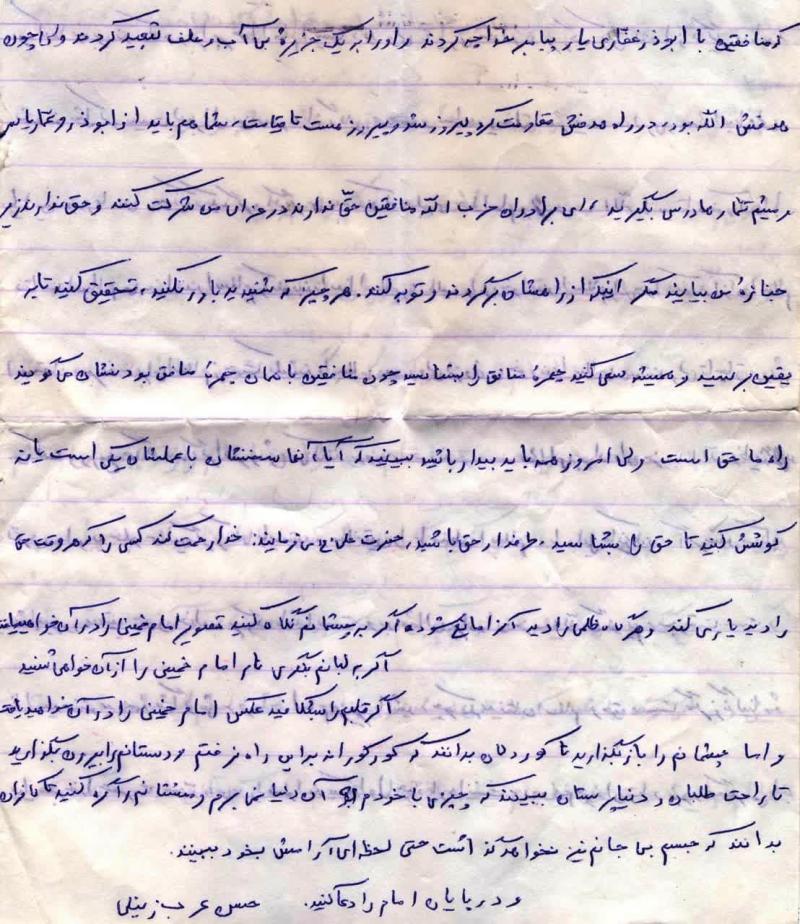 که منافقین با ابوذر غفاری یار پیامبر خدا چه کردند و او را به یک جزیرهٔ بی آب و علف تبعید کردند ولی چون
هدفش الله بود و در راه هدفش مقاومت کرد پیروز شد و پیروز هست تا قیامت، شما هم باید از ابوذر و عمار یاسر
و میثم تمار ها درس بگیرید، ای برادران حزب الله منافقین حقّ ندارند در عزای من شرکت کنند و حق ندارند زیر
جنازهٔ من بیایند مگر اینکه از راهشان برگردند و توبه کنند. هر چیز که شنیدید باور نکنید، تحقیق کنید تا به
یقین برسید و همیشه سعی کنید چهرهٔ منافق را بشناسید چون منافقین با همان چهرهٔ منافق بودنشان می گویند
راه ما حق است ولی امروز همه باید بیدار باشید ببینید که آیا آنها سخنشان با عملشان یکی است یا نه
کوشش کنید تا حق را بشناسید و طرفدار حق باشید، حضرت علی (ع) می فرمایند: خدا رحمت کند کسی را که هر وقت حق
را دید یاری کند و هرگاه ظلمی را دید آنرا مانع شود، اگر به چشمانم نگاه کنید تصویر امام خمینی را در آن خواهید یافت
اگر به لبانم بنگری نام امام خمینی را از آن خواهی شنید
اگر قلبم را بشکافید عکس امام خمینی را در آن خواهید یافت
و اما چشمانم را باز بگذارید تا کوردلان بدانند که کورکورانه به این راه نرفتم و دستانم را بیرون بگذارید
تا راحت طلبان و دنیاپرستان ببینند که چیزی با خودم به آن دنیا نمی برم و مشتانم را گره کنید تا کافران
بدانند که جسم بی جانم نیز نخواهد گذاشت حتی لحظه ای آرامش بخود ببینند.
و در پایان امام را دعا کنید. حسن عرب زینلی